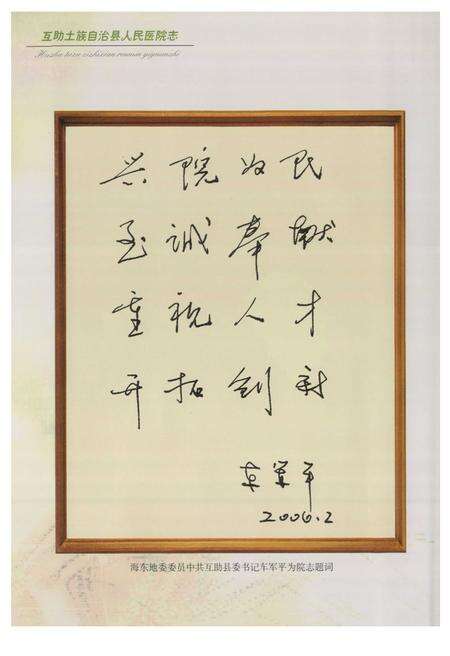 互助土族自治县人民医院志
Huzhu tuzu zizhixian renmin yiyuanzhi
兴院为民
至诚奉献
重视人才
开拓创新
车军平
2006.2
海东地委委员中共互助县委书记车军平为院志题词